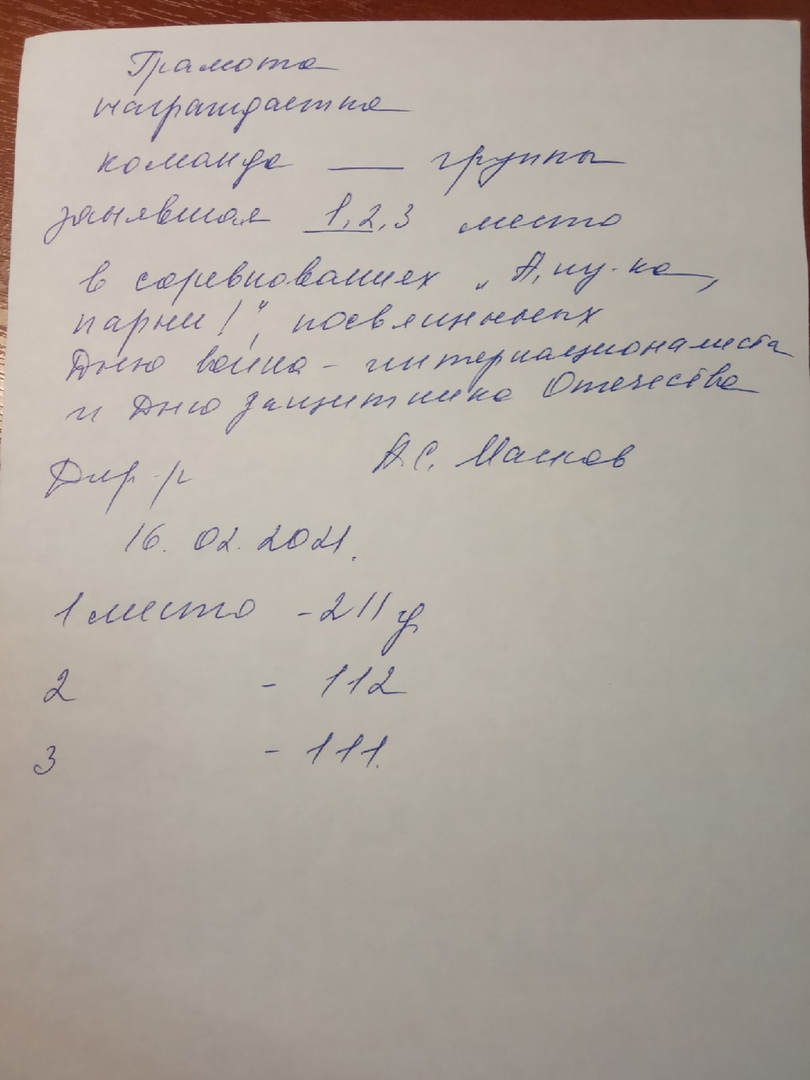 Грамота
награждается
команда ___ группы
занявшая 1, 2, 3 место
в соревнованиях „А, ну-ка,
парни!", посвященных
Дню воина-интернационалиста
и Дню защитника Отечества
Дир-р А.С. Масков
16.02.2021.
1 место - 211 гр
2 - 112
3 - 111.